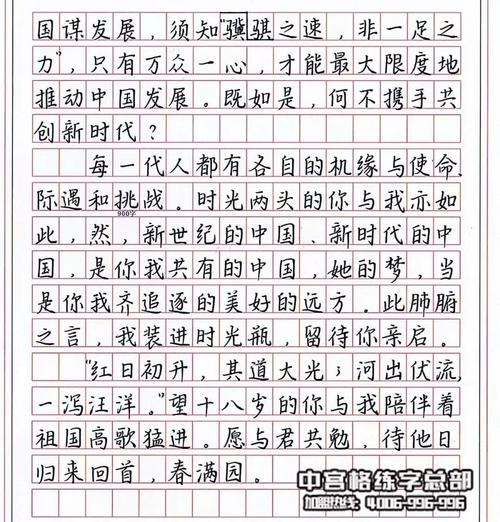 国谋发展，须知“骥骐之速，非一足之
力”，只有万众一心，才能最大限度地
推动中国发展。既如是，何不携手共
创新时代？
每一代人都有各自的机缘与使命，
际遇和挑战。时光两头的你与我亦如
900字
此，然，新世纪的中国、新时代的中
国，是你我共有的中国，她的梦，当
是你我齐追逐的美好的远方。此肺腑
之言，我装进时光瓶，留待你亲启。
“红日初升，其道大光；河出伏流，
一泻汪洋。”望十八岁的你与我陪伴着
祖国高歌猛进。愿与君共勉，待他日
归来回首，春满园。
中宫格练字总部
加盟热线：4006-996-996